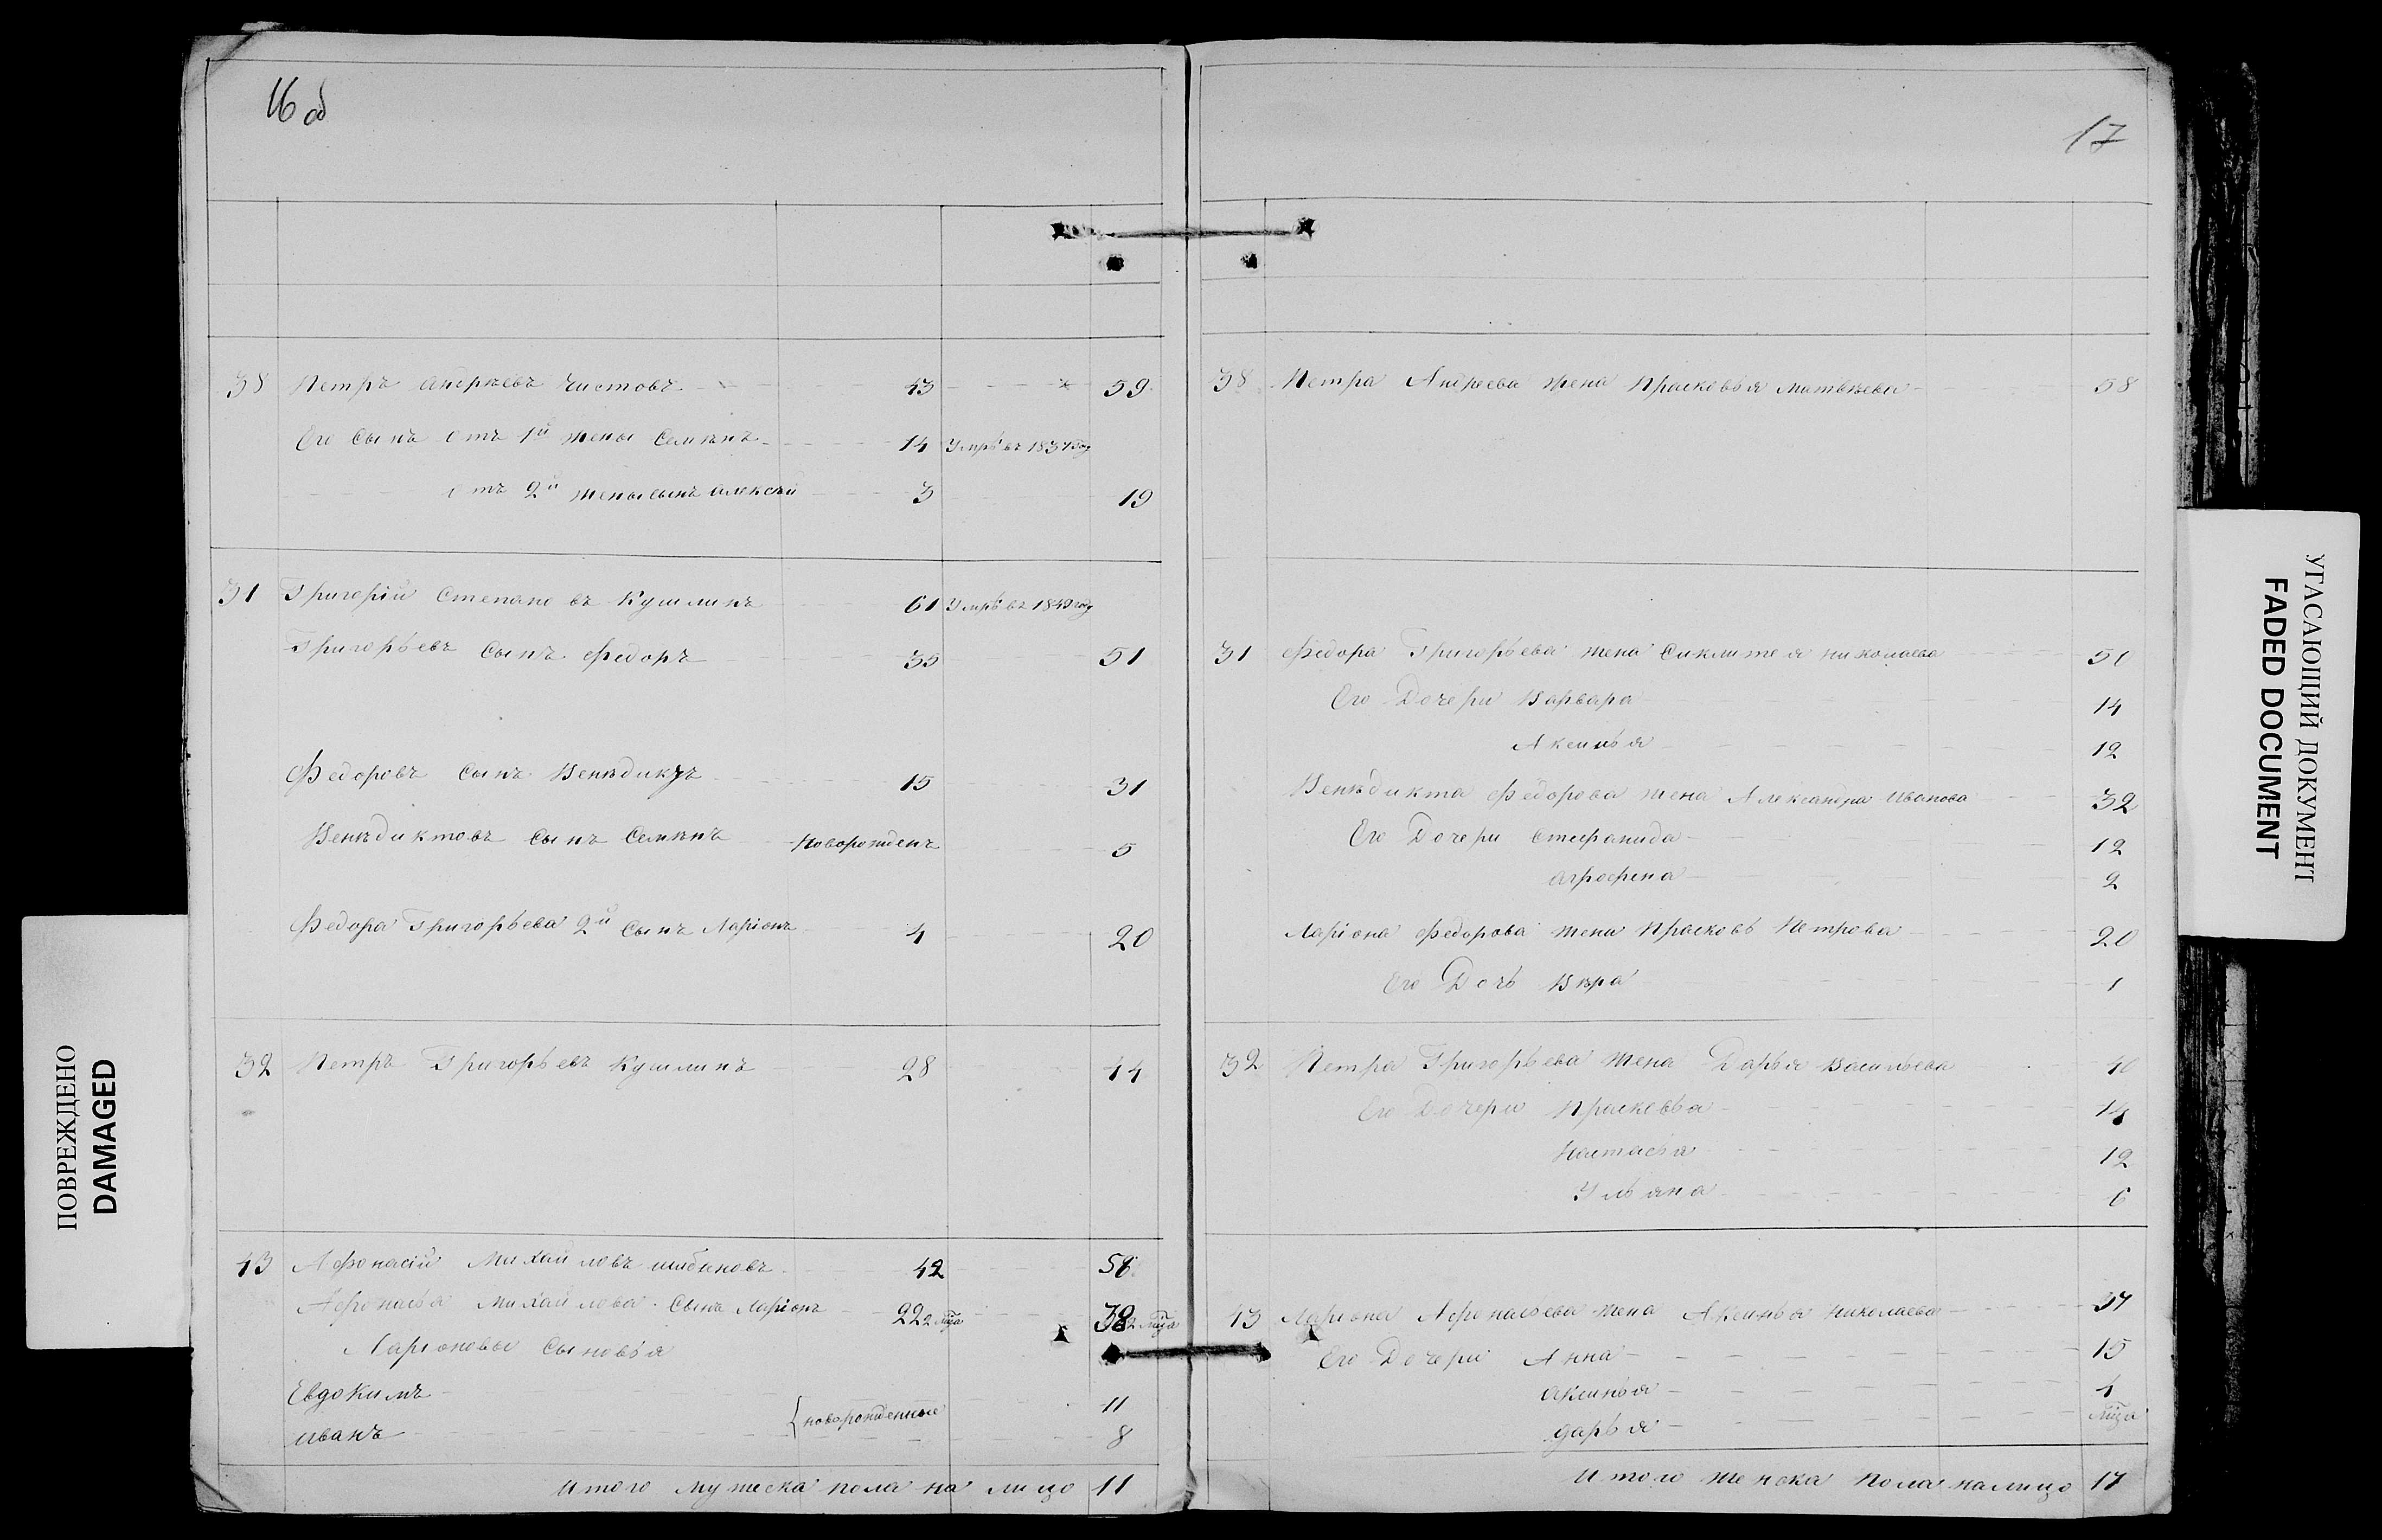 16 об
38 Петръ Андрѣевъ Чистовъ 43 59
Его сынъ отъ 1й жены Семѣнъ 14 Умрѣ въ 1837 году
отъ 2й жены сынъ Алексѣй 3 19
31 Григорій Степановъ Кушлинъ 61 Умрѣ въ 1849 году
Григорьевъ сынъ Федоръ 35 51
Федоровъ сынъ Венѣдиктъ 15 31
Венѣдиктовъ сынъ Семѣнъ новорожденъ 5
Федора Григорьева 2й сынъ Ларіонъ 4 20
32 Петръ Григорьевъ Кушлинъ 28 44
43 Афонасій Михайловъ 42 58
Афонасья Михайлова сынъ Ларіонъ 22 2 мца 38 2 мца
Ларіоновы сыновья
Евдокимъ 11
{новорожденные
Иванъ 8
Итого мужеска пола на лицо 11
17
38 Петра Андреева жена Прасковья Матвѣева 58
31 Федора Григорьева жена Сиклитея Николаева 50
Его Дочери Варвара 14
Аксинья 12
Венѣдикта Федорова жена Александра Иванова 32
Его Дочери Стефанида 12
Агрофена 2
Ларіона Федорова жена Прасковь Петрова 20
Его Дочь Вѣра 1
32 Петра Григорьева жена Дарья Васильева 40
Его Дочери Прасковья 14
Настасья 12
Ульяна 6
43 Ларіона Афонасьева жена Аксинья Николаева 37
Его Дочери Анна 15
Аксинья 4
Дарья мца
Итого женска пола налицо 17
ПОВРЕЖДЕНО
DAMAGED
УГАСАЮЩИЙ ДОКУМЕНТ
FADED DOCUMENT